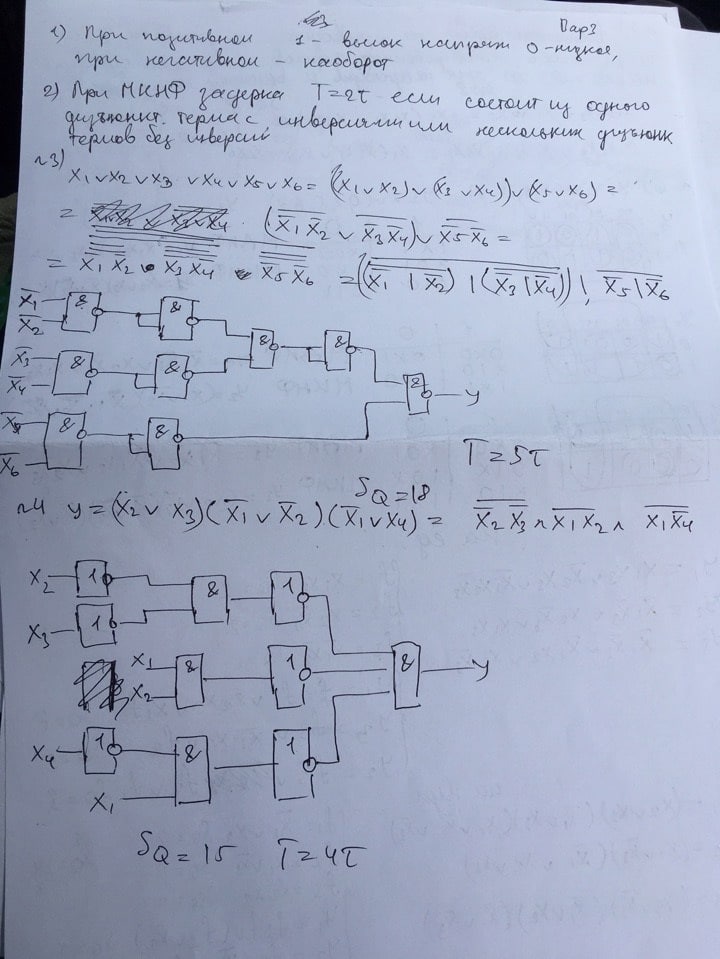 Вар 3
1) При позитивной 1 - высок напряж 0 - низкое,
при негативной - наоборот
2) При МКНФ задержка T=2τ если состоит из одного
дизъюнкт. терма с инверсиями или нескольких дизъюнк
термов без инверсий
~3)
X1∨X2∨X3∨X4∨X5∨X6 = ((X1∨X2)∨(X3∨X4))∨(X5∨X6) =
=
= 
X̅1
X̅2
&
&
&
&
X̅3
X̅4
&
&
&
y
X̅5
X̅6
&
&
T=5τ
SQ=18
~4 y=(X2∨X3)(X̅1∨X̅2)(X̅1∨X4) =
X2
1
&
1
X3
1
X1
X2
&
1
&
y
X4
1
&
1
X1
SQ=15 T=4τ